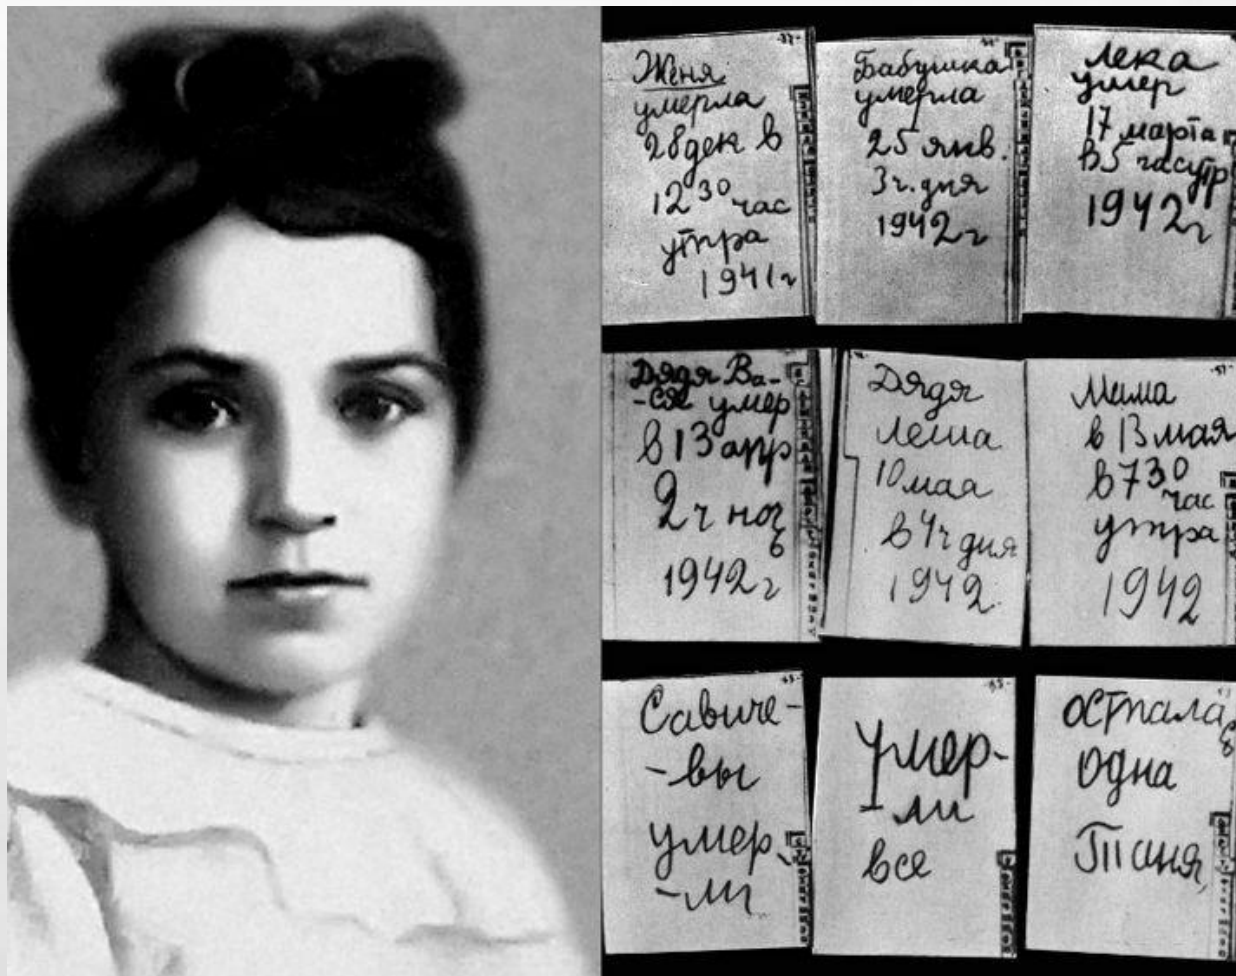 Женя
умерла
28 дек в
12 30 час
утра
1941 г
Бабушка
умерла
25 янв.
3 ч. дня
1942 г
Лека
умер
17 марта
в 5 час утр
1942 г
Дядя Ва-
-ся умер
в 13 апр
2 ч ночь
1942 г
Дядя
Леша
10 мая
в 4 ч дня
1942
Мама
в 13 мая
в 7 30
час
утра
1942
Савиче-
-вы
умер
-ли
умер-
-ли
все
осталась
одна
Таня